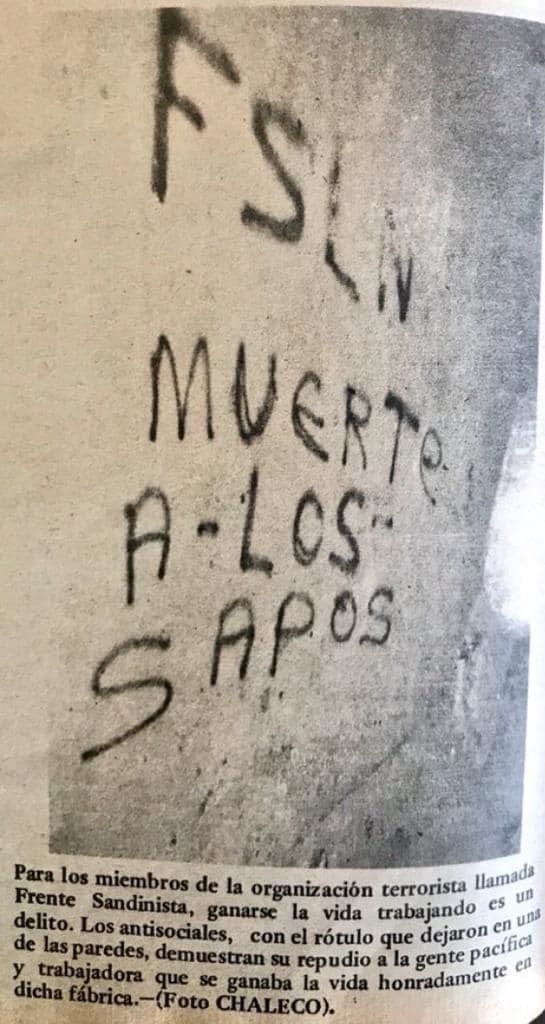 FSLN
MUERTE
A-LOS-
SAPOS
Para los miembros de la organización terrorista llamada
Frente Sandinista, ganarse la vida trabajando es un
delito. Los antisociales, con el rótulo que dejaron en una
de las paredes, demuestran su repudio a la gente pacífica
y trabajadora que se ganaba la vida honradamente en
dicha fábrica.—(Foto CHALECO).